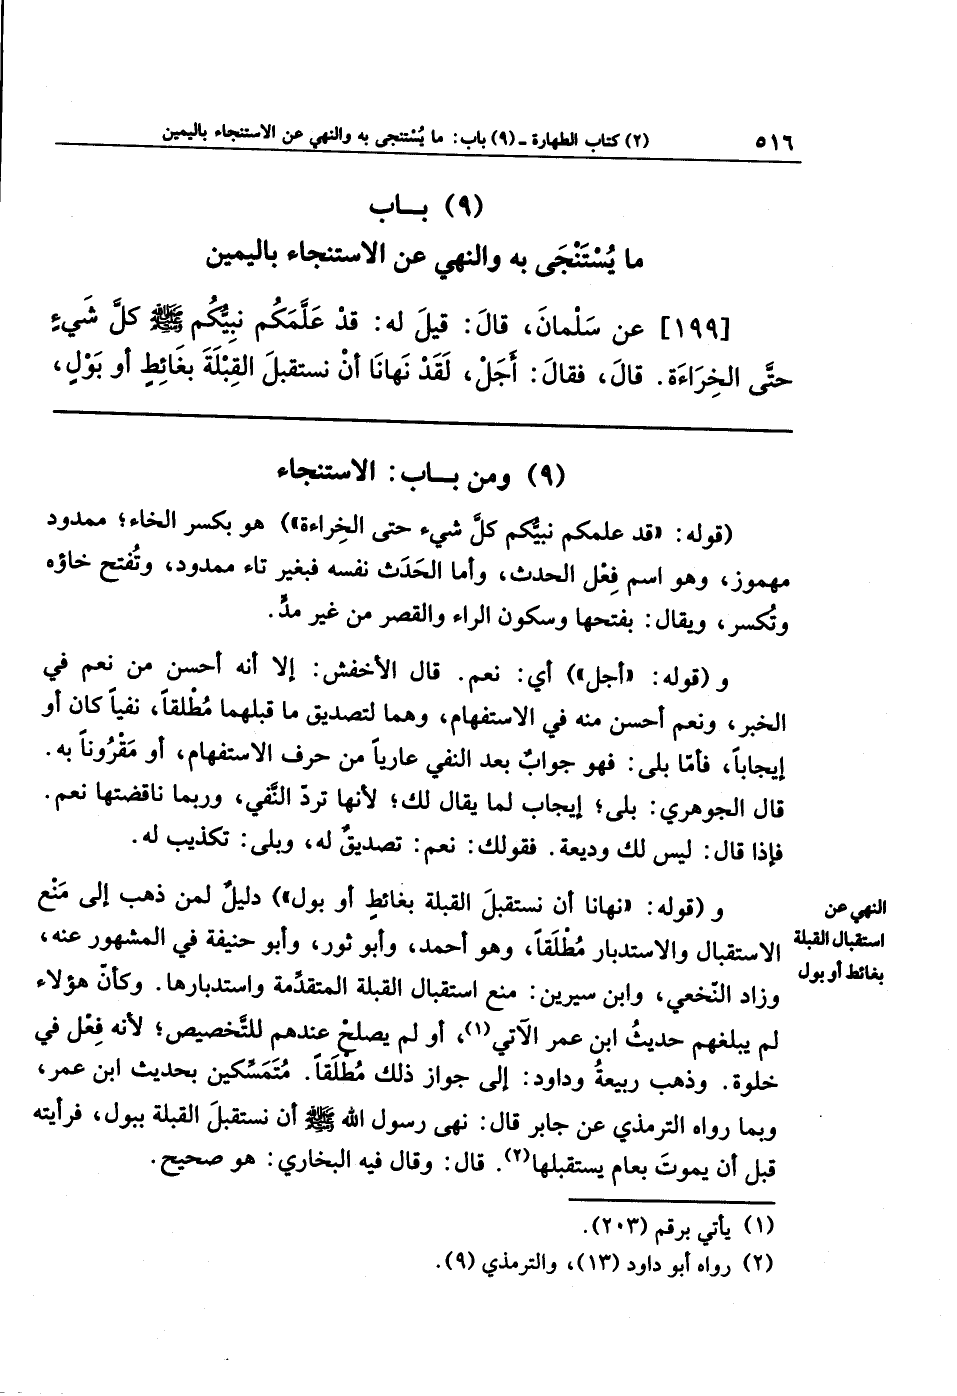 ٥١٦ (٢) كتاب الطهارة ـ (٩) باب: ما يُسْتنجى به والنهي عن الاستنجاء باليمين
(٩) بـــاب
ما يُسْتَنْجَى به والنهي عن الاستنجاء باليمين
[١٩٩] عن سَلْمانَ، قالَ: قيلَ له: قدْ عَلَّمَكُم نبيُّكُم ﷺ كلَّ شَيءٍ
حتَّى الخِرَاءَة. قالَ، فقالَ: أَجَلْ، لَقَدْ نَهانَا أنْ نستقبلَ القِبْلَةَ بغَائِطٍ أو بَوْلٍ،
(٩) ومن بـــاب: الاستنجاء
(قوله: «قد علمكم نبيُّكم كلَّ شيء حتى الخِراءة») هو بكسر الخاء؛ ممدود
مهموز، وهو اسم فِعْل الحدث، وأما الحَدَث نفسه فبغير تاء ممدود، وتُفتح خاؤه
وتُكسر، ويقال: بفتحها وسكون الراء والقصر من غير مدٍّ.
و (قوله: «أجل») أي: نعم. قال الأخفش: إلا أنه أحسن من نعم في
الخبر، ونعم أحسن منه في الاستفهام، وهما لتصديق ما قبلهما مُطْلقاً، نفياً كان أو
إيجاباً، فأمّا بلى: فهو جوابٌ بعد النفي عارياً من حرف الاستفهام، أو مَقْرُوناً به.
قال الجوهري: بلى؛ إيجاب لما يقال لك؛ لأنها تردّ النَّفي، وربما ناقضتها نعم.
فإذا قال: ليس لك وديعة. فقولك: نعم: تصديقٌ له، وبلى: تكذيب له.
و (قوله: «نهانا أن نستقبلَ القبلة بغائطٍ أو بول») دليلٌ لمن ذهب إلى مَنْع
الاستقبال والاستدبار مُطْلَقاً، وهو أحمد، وأبو ثور، وأبو حنيفة في المشهور عنه،
وزاد النّخعي، وابن سيرين: منع استقبال القبلة المتقدِّمة واستدبارها. وكأنّ هؤلاء
لم يبلغهم حديثُ ابن عمر الآتي(١)، أو لم يصلحْ عندهم للتَّخصيص؛ لأنه فِعْل في
خلوة. وذهب ربيعةُ وداود: إلى جواز ذلك مُطْلَقاً. مُتَمَسِّكين بحديث ابن عمر،
وبما رواه الترمذي عن جابر قال: نهى رسول الله ﷺ أن نستقبلَ القبلة ببول، فرأيته
قبل أن يموتَ بعام يستقبلها(٢). قال: وقال فيه البخاري: هو صحيح.
النهي عن
استقبال القبلة
بغائط أو بول
(١) يأتي برقم (٢٠٣).
(٢) رواه أبو داود (١٣)، والترمذي (٩).